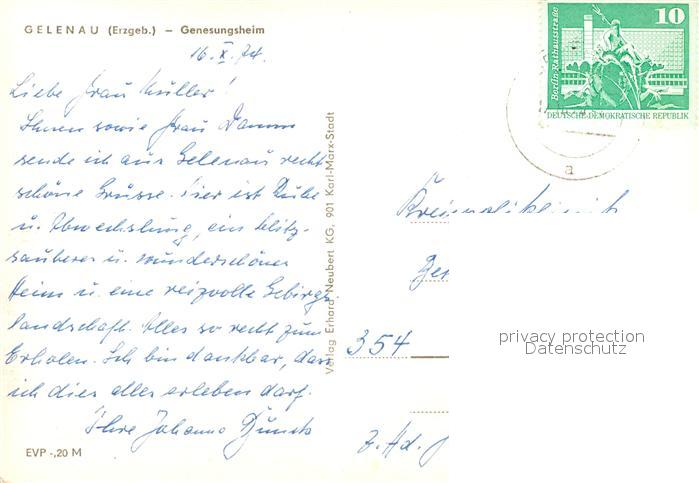 GELENAU (Erzgeb.) – Genesungsheim
16. X. 74.
Liebe Frau Müller!
Ihnen sowie Frau Damm
sende ich aus Gelenau recht
schöne Grüsse. Hier ist Ruhe
u. Abwechslung, ein blitz-
sauberes u. wunderschönes
Heim u. eine reizvolle Gebirgs-
landschaft. Alles so recht zum
Erholen. Ich bin dankbar, dass
ich dies alles erleben darf.
Ihre Johanna
EVP -,20 M
Verlag Erhard Neubert KG, 901 Karl-Marx-Stadt
Berlin, Rathausstraße
10
DEUTSCHE DEMOKRATISCHE REPUBLIK
a
354
z. Hd.
privacy protection
Datenschutz